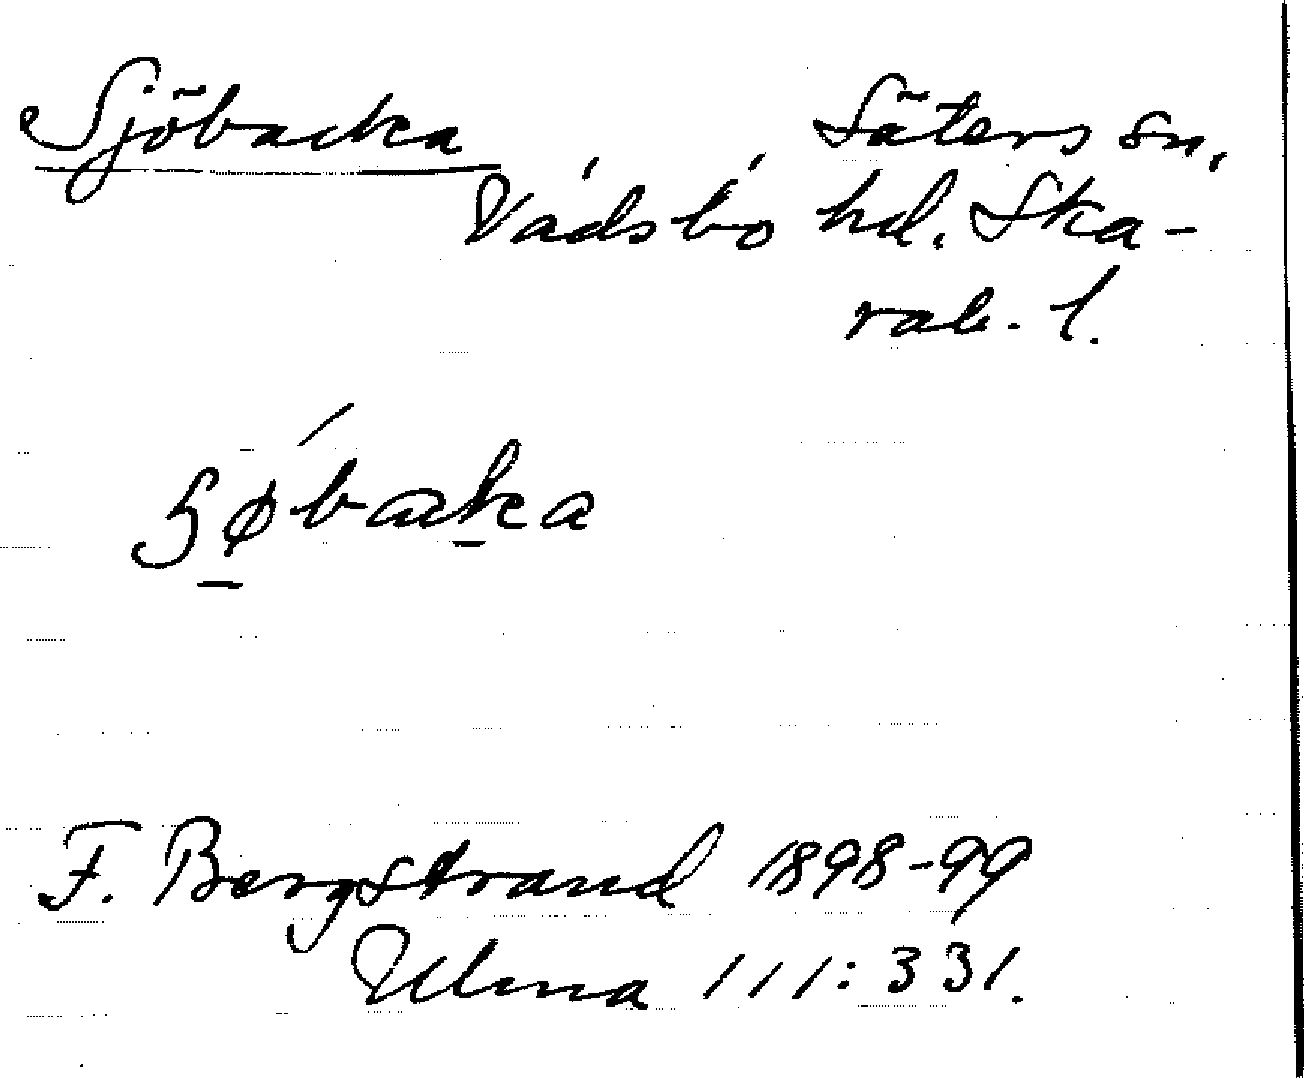 Sjöbacka Säters sn,
Vadsbo hd. Ska-
rab. l.
F. Bergstrand 1898-99
Ulma 111:331.